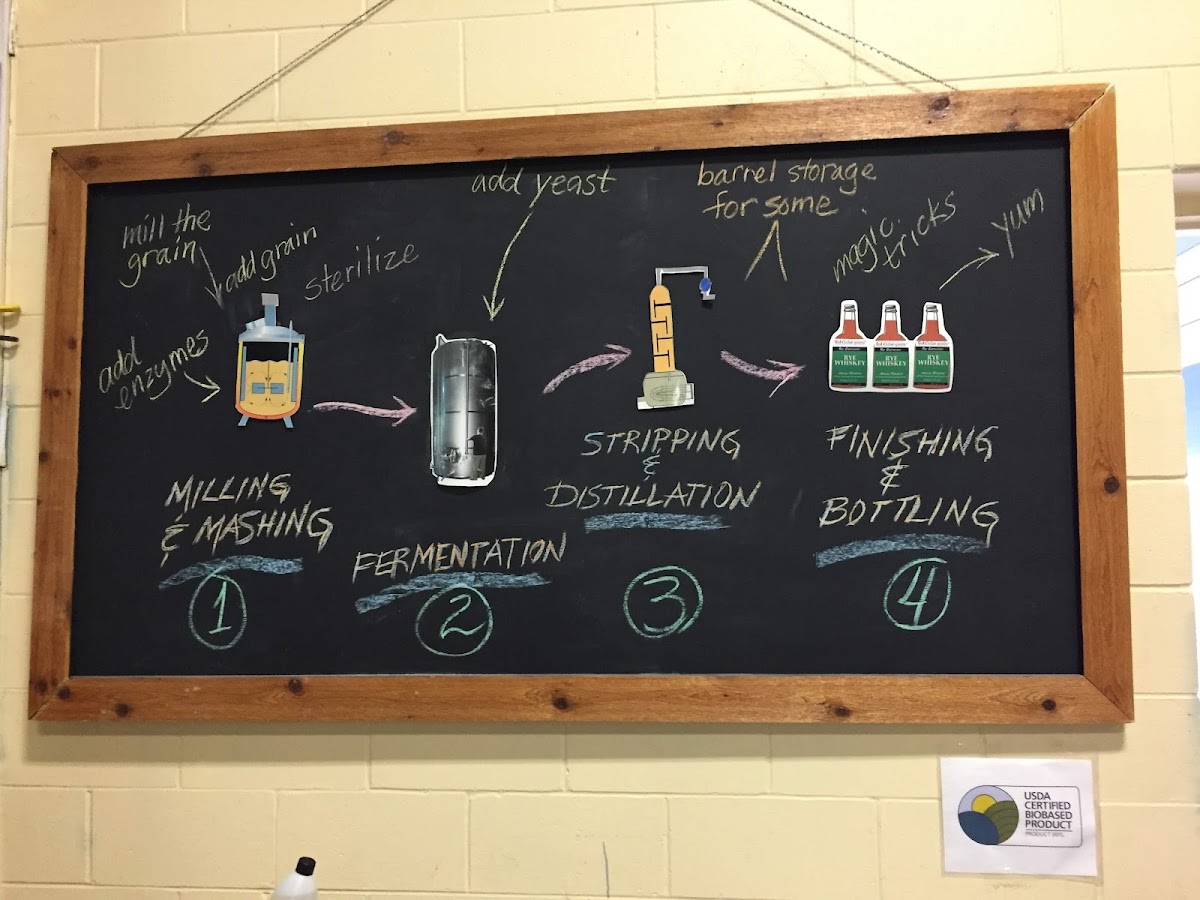 mill the
grain
add grain
sterilize
add
enzymes
add yeast
barrel storage
for some
magic
tricks
yum
RYE
WHISKEY
RYE
WHISKEY
RYE
WHISKEY
MILLING
& MASHING
1
FERMENTATION
2
STRIPPING
&
DISTILLATION
3
FINISHING
&
BOTTLING
4
USDA
CERTIFIED
BIOBASED
PRODUCT